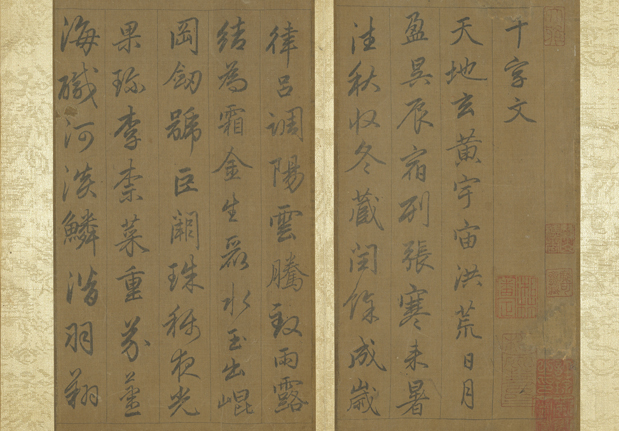 千字文
天地玄黃宇宙洪荒日月
盈昃辰宿列張寒来暑
往秋收冬蔵閏餘成歳
律呂調陽雲騰致雨露
結為霜金生麗水玉出崐
岡劒號巨闕珠稱夜光
果珎李柰菜重芥薑
海醎河淡鱗潛羽翔